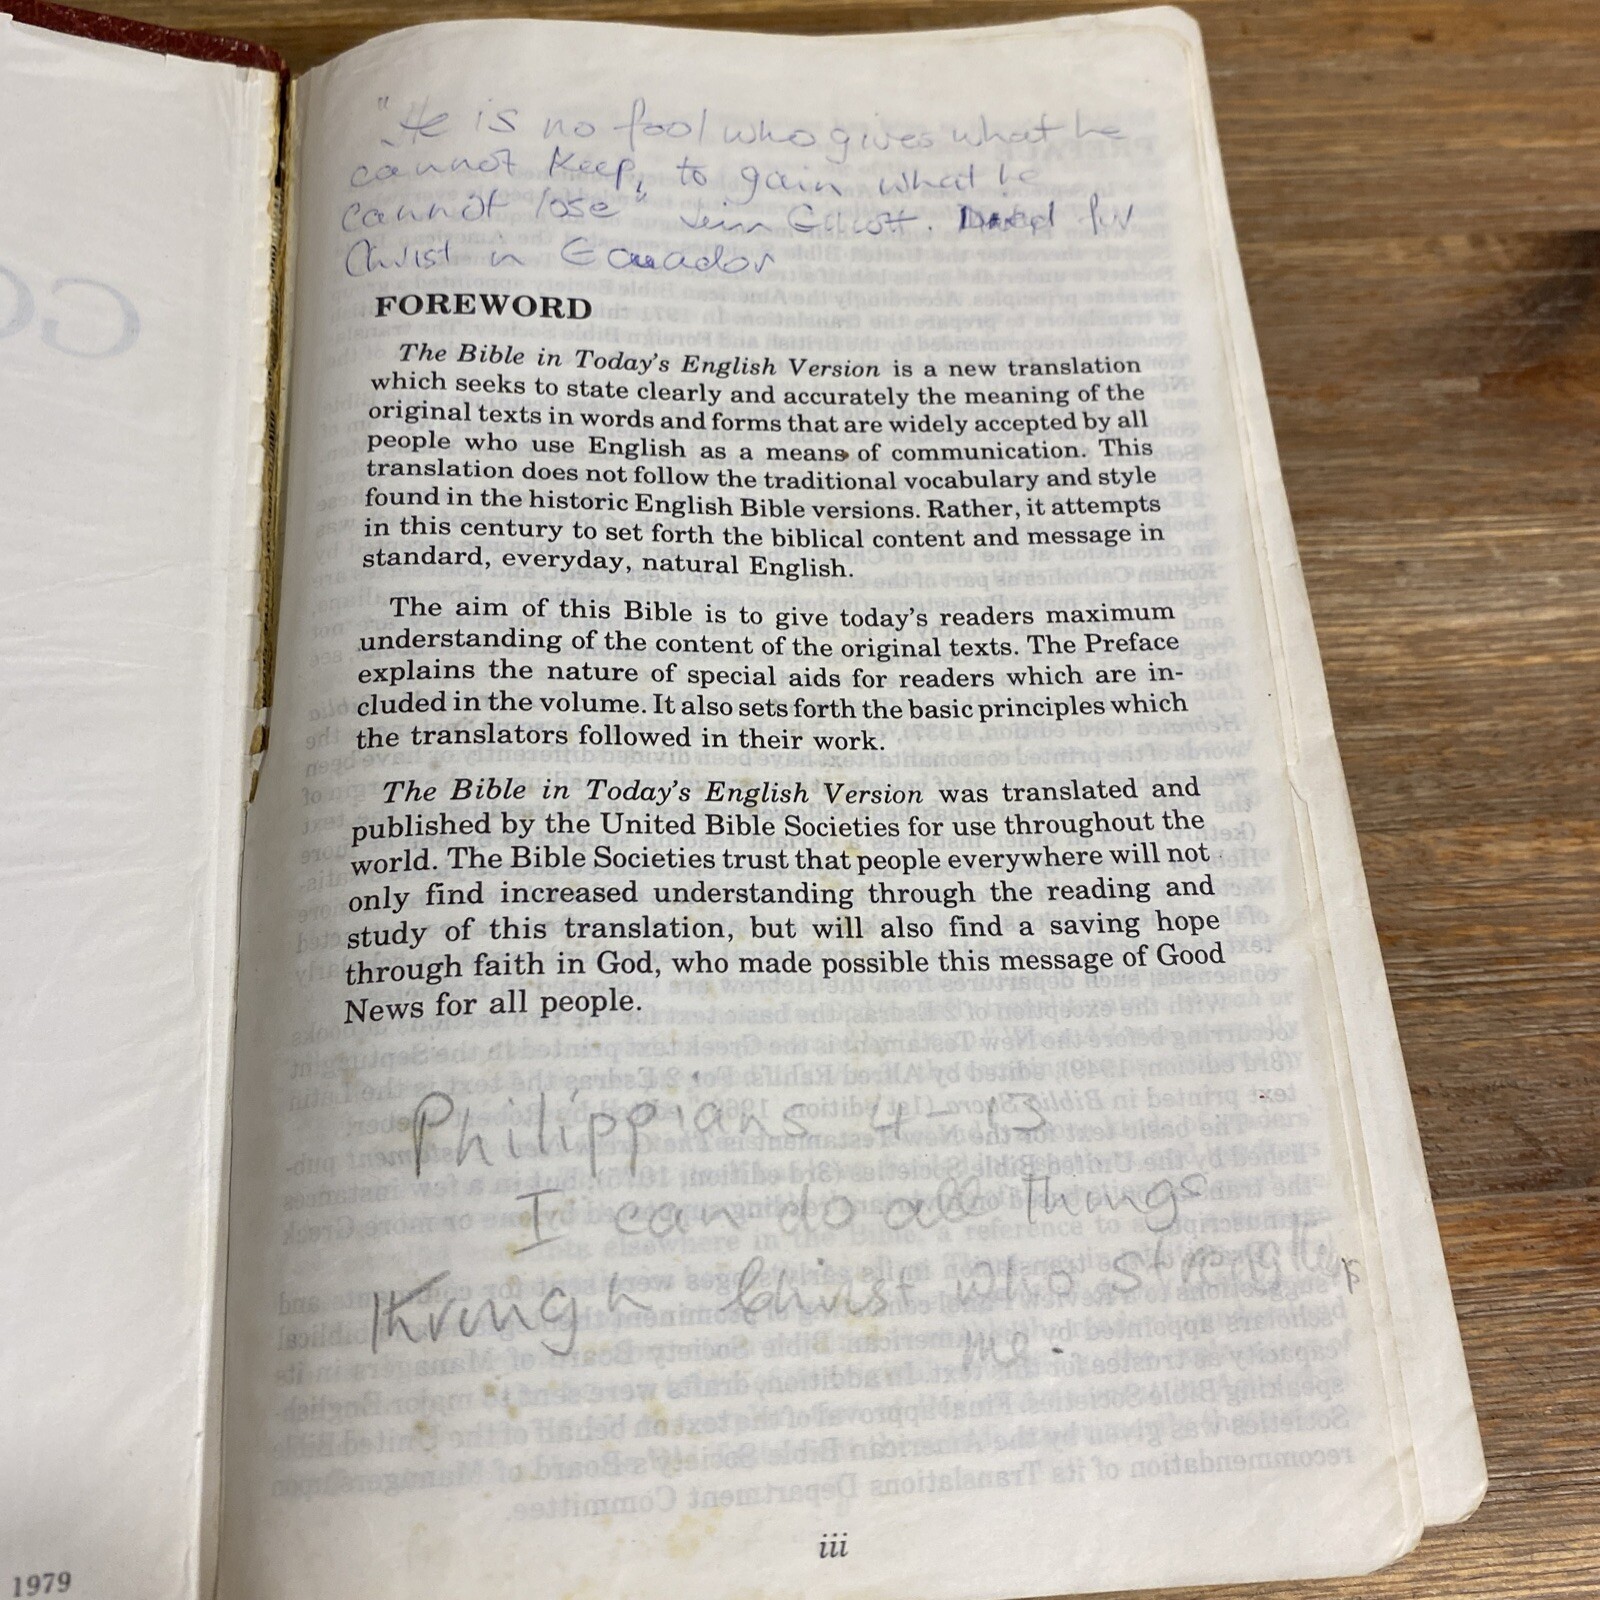 "He is no fool who gives what he
cannot keep, to gain what he
cannot lose" Jim Elliott. Died for
Christ in Ecuador
FOREWORD
The Bible in Today's English Version is a new translation
which seeks to state clearly and accurately the meaning of the
original texts in words and forms that are widely accepted by all
people who use English as a means of communication. This
translation does not follow the traditional vocabulary and style
found in the historic English Bible versions. Rather, it attempts
in this century to set forth the biblical content and message in
standard, everyday, natural English.
The aim of this Bible is to give today's readers maximum
understanding of the content of the original texts. The Preface
explains the nature of special aids for readers which are in-
cluded in the volume. It also sets forth the basic principles which
the translators followed in their work.
The Bible in Today's English Version was translated and
published by the United Bible Societies for use throughout the
world. The Bible Societies trust that people everywhere will not
only find increased understanding through the reading and
study of this translation, but will also find a saving hope
through faith in God, who made possible this message of Good
News for all people.
Philippians 4-13
I can do all things
Christ who
me.
iii
1979